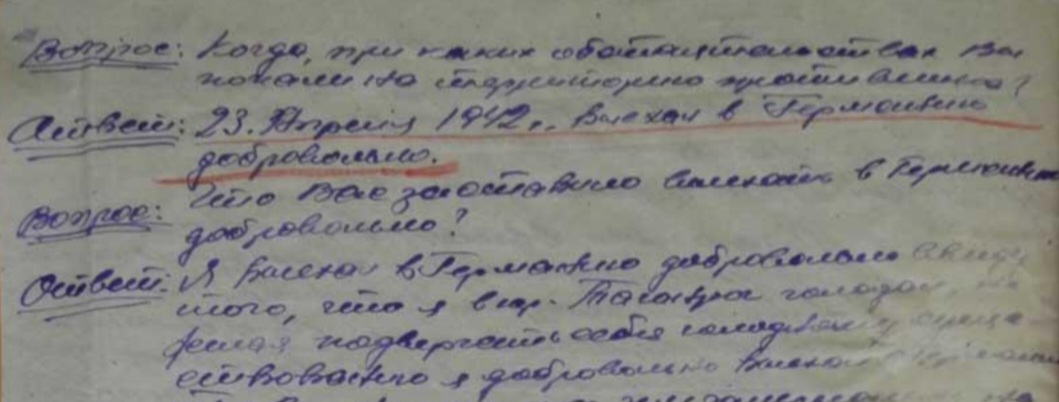 Вопрос: Когда, при каких обстоятельствах Вы
попали на территорию противника?
Ответ: 23. Апреля 1942г. выехал в Германию
добровольно.
Вопрос: Что Вас заставило выехать в Германию
добровольно?
Ответ: Я выехал в Германию добровольно ввиду
того, что я в гор. Таганрог голодал, не
желая подвергать себя голодному суще-
ствованию я добровольно выехал в